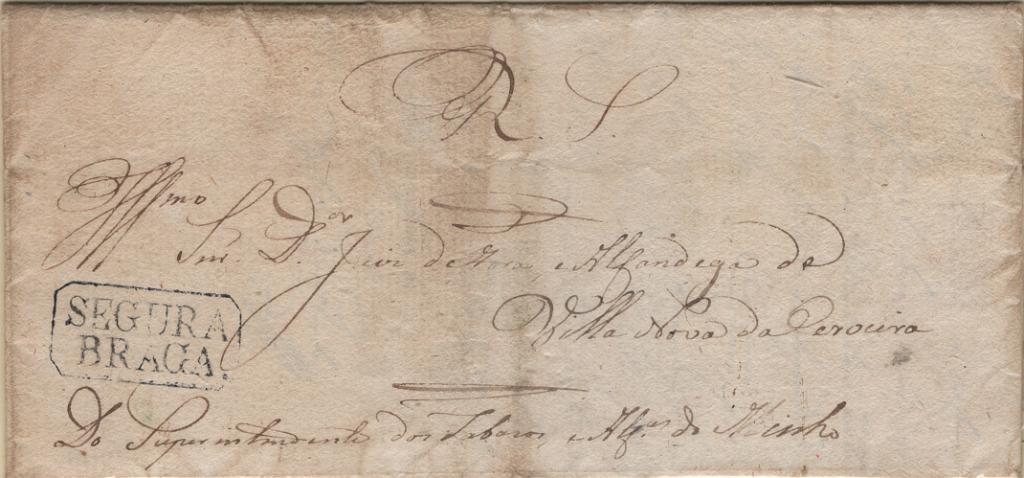 R. S.
Illmo
Snr. Dor Juiz de Fora, e Alfandega de
Villa Nova da Cerveira
SEGURA
BRAGA.
Do Superintendente dos Tabacos, e Alfas do Minho